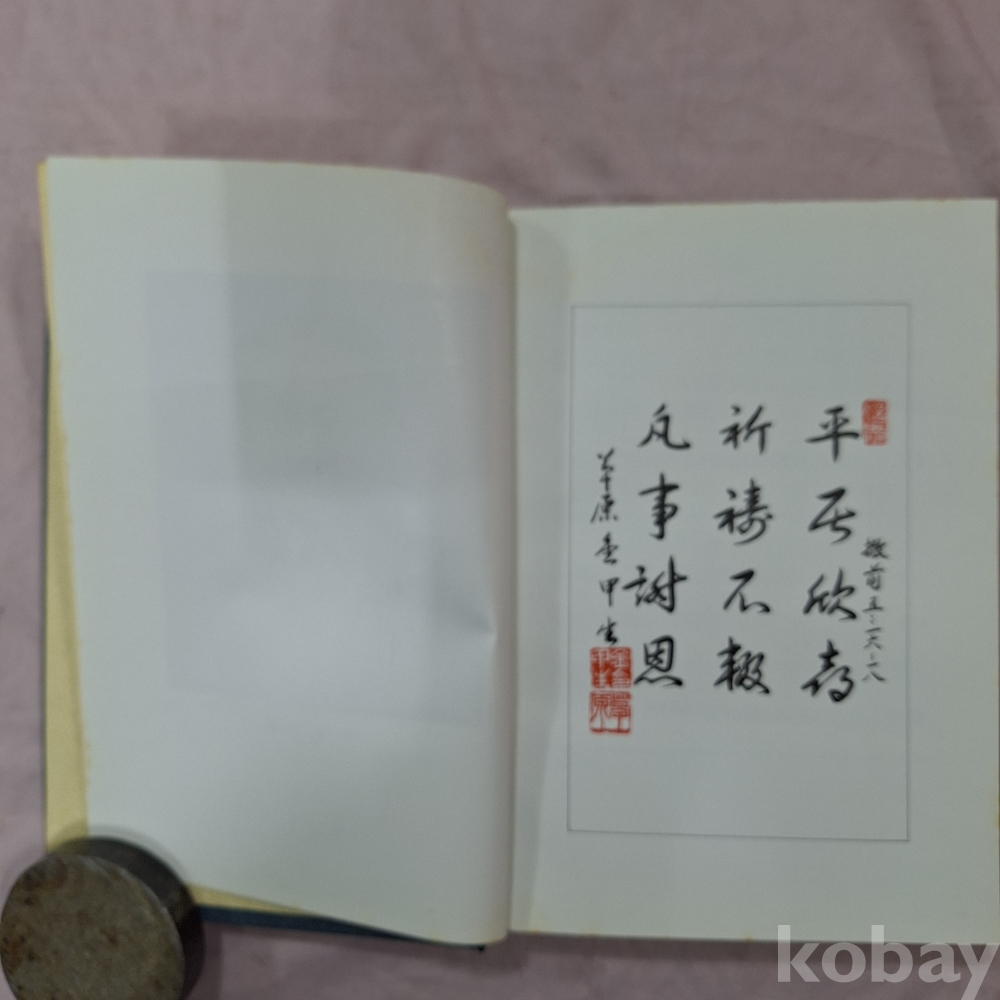 平居欣喜
撒前五:一六-一八
祈禱不輟
凡事謝恩
金甲生
kobay